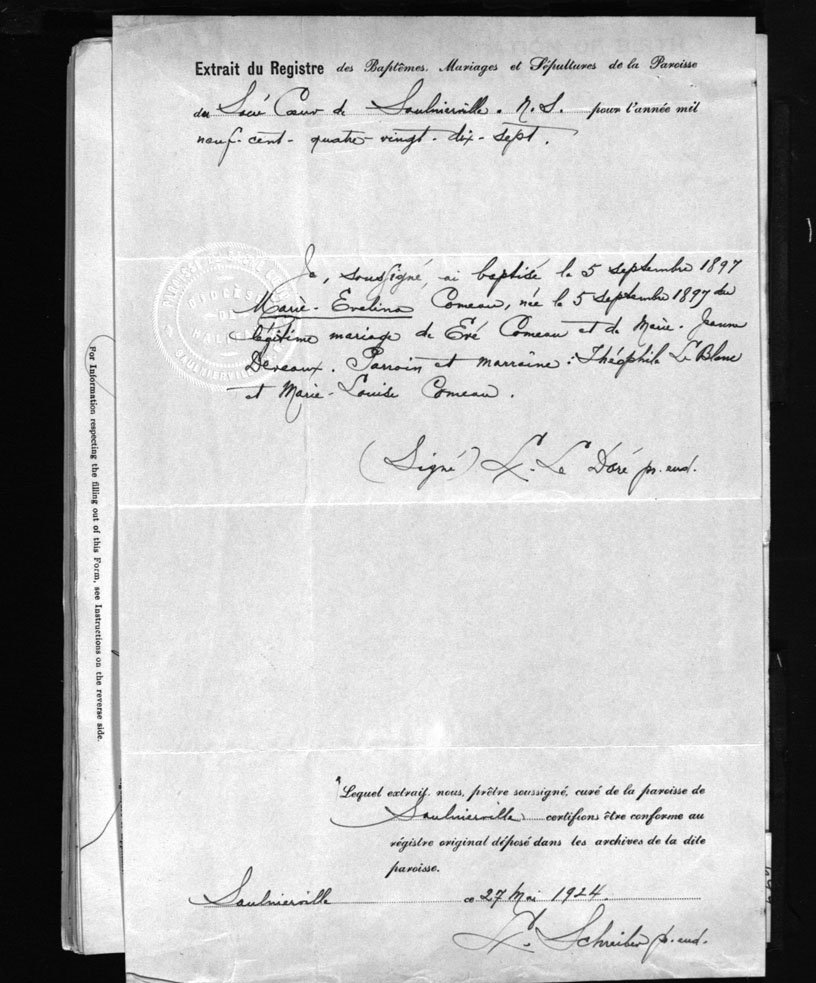 Extrait du Registre des Baptêmes, Mariages et Sépultures de la Paroisse
du Sacré Cœur de Saulnierville. N.S. pour l'année mil
neuf-cent-quatre-vingt-dix-sept.
Je, soussigné, ai baptisé le 5 septembre 1897
Marie-Evelina Comeau, née le 5 septembre 1897 du
légitime mariage de Evé Comeau et de Marie-Jeanne
Deveaux. Parrain et marraine: Théophile LeBlanc
et Marie-Louise Comeau.
(Signé) L. Le Doré pr. eud.
"Lequel extrait, nous, prêtre soussigné, curé de la paroisse de
Saulnierville certifions être conforme au
régistre original déposé dans les archives de la dite
paroisse.
Saulnierville ce 27 Mai 1924.
L. Schreiber p. eud.
For Information respecting the filling out of this Form, see Instructions on the reverse side.
DIOCÈSE
DE
SAULNIERVILLE